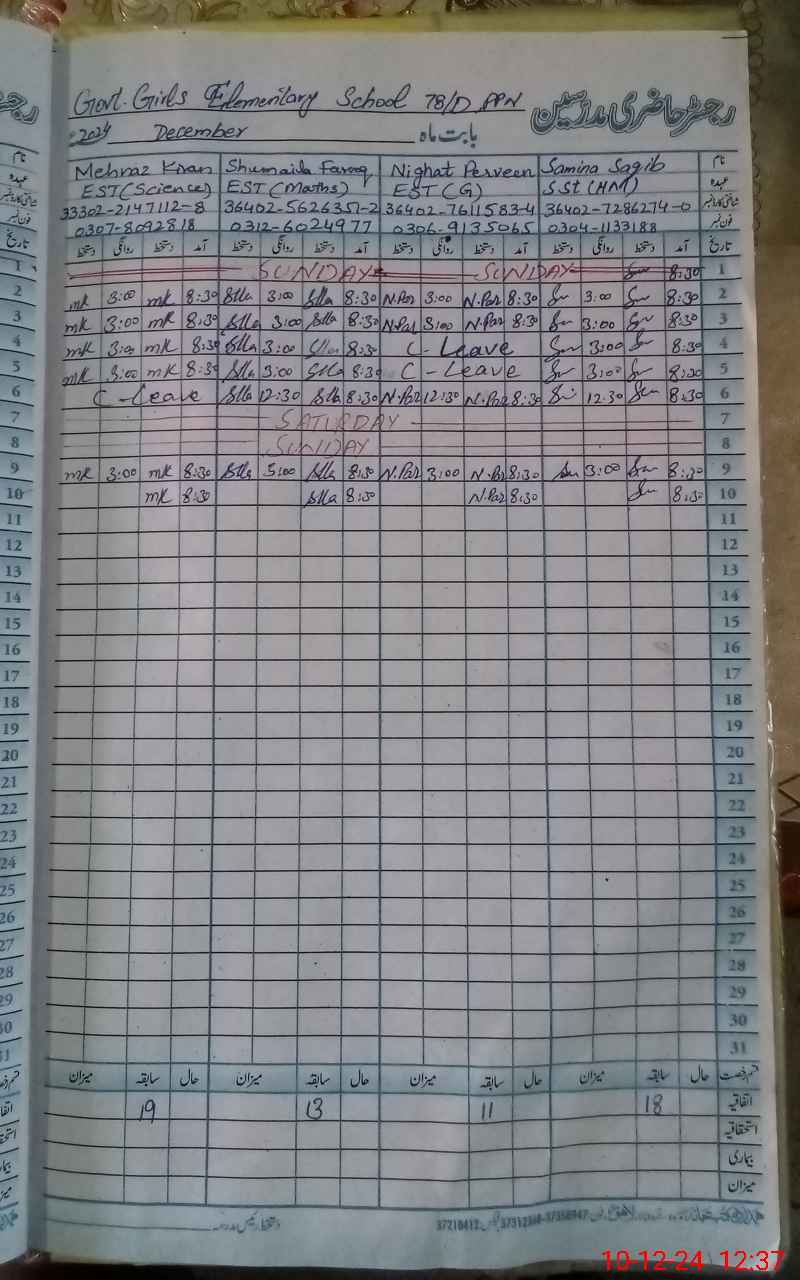 Govt. Girls Elementary School 78/D PPN رجسٹر حاضری مدرسین
2024 December بابت ماہ
Mehnaz Kiran Shumaila Farooq Nighat Perveen Samina Saqib نام
EST (Science) EST (Maths) EST (G) SSt (HM) عہدہ
33302-2147112-8 36402-5626351-2 36402-7611583-4 36402-7286274-0
0307-8092818 0312-6024977 0306-9135065 0304-1133188 فون نمبر
دستخط روانگی دستخط آمد دستخط روانگی دستخط آمد دستخط روانگی دستخط آمد دستخط روانگی دستخط آمد تاریخ
SUNDAY SUNDAY 8:30 1
mk 3:00 mk 8:30 3:00 8:30 N.Par 3:00 N.Par 8:30 3:00 8:30 2
mk 3:00 mk 8:30 3:00 8:30 N.Par 3:00 N.Par 8:30 3:00 8:30 3
mk 3:00 mk 8:30 3:00 8:30 C-Leave 3:00 8:30 4
mk 3:00 mk 8:30 3:00 8:30 C-Leave 3:00 8:30 5
C-Leave 12:30 8:30 N.Par 12:30 N.Par 8:30 12:30 8:30 6
SATURDAY 7
SUNDAY 8
mk 3:00 mk 8:30 3:00 8:30 N.Par 3:00 N.Par 8:30 3:00 8:30 9
mk 8:30 8:30 N.Par 8:30 8:30 10
11
12
13
14
15
16
17
18
19
20
21
22
23
24
25
26
27
28
29
30
31
میزان سابقہ حال میزان سابقہ حال میزان سابقہ حال میزان سابقہ حال قسم رخصت
19 13 11 18 اتفاقیہ
استحقاقیہ
بیماری
میزان
دستخط رئیس مدرسہ
10-12-24 12:37